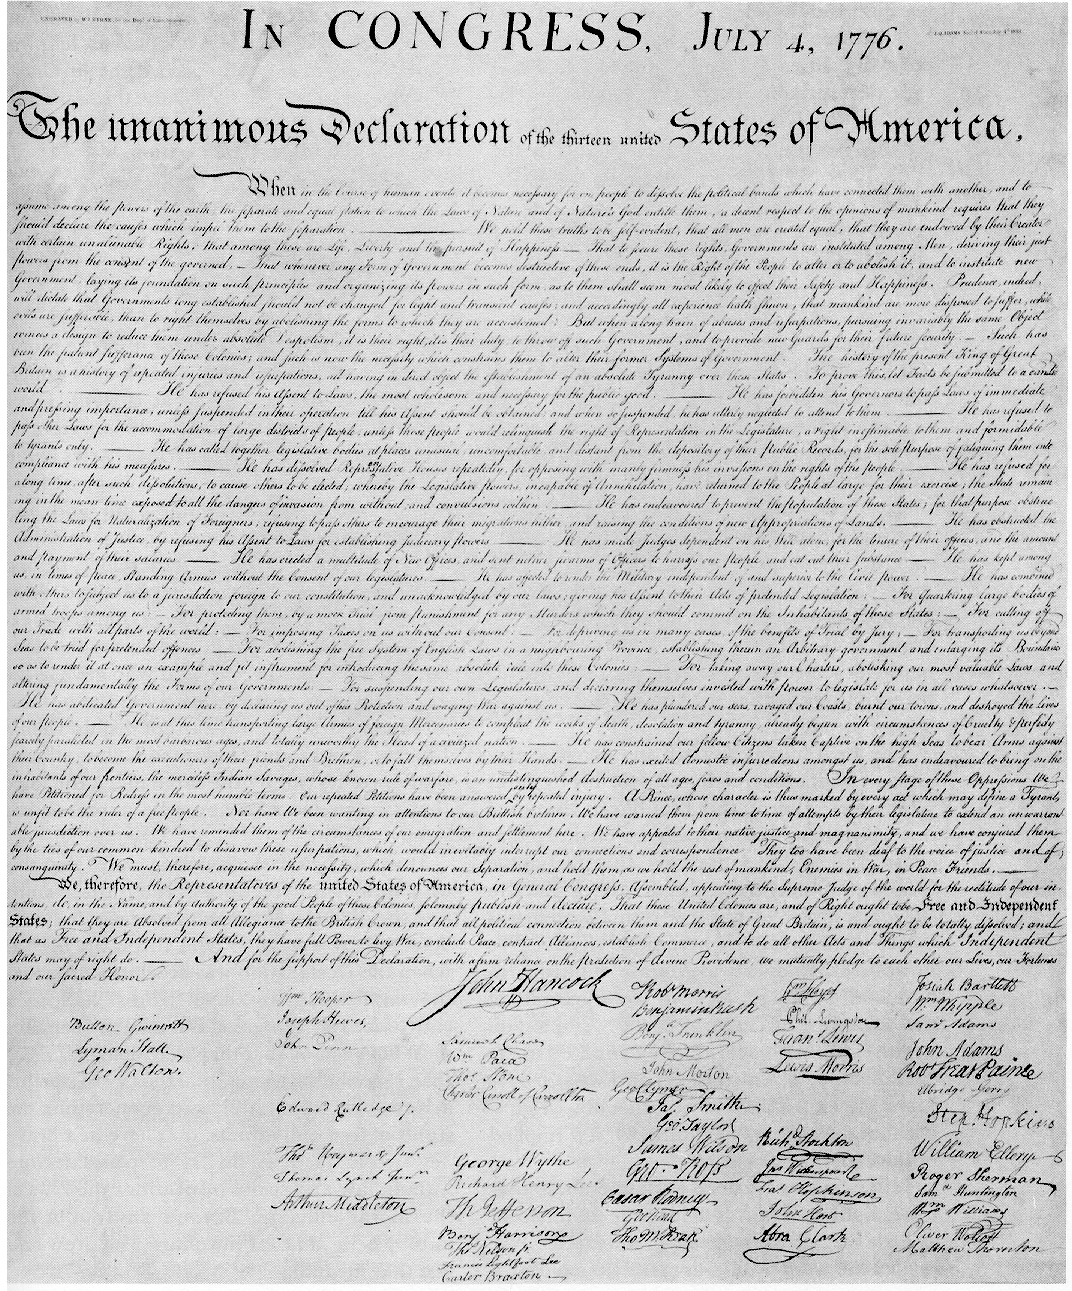 IN CONGRESS, JULY 4, 1776.
The unanimous Declaration of the thirteen united States of America,
When in the Course of human events it becomes necessary for one people to dissolve the political bands which have connected them with another, and to
assume among the powers of the earth, the separate and equal station to which the Laws of Nature and of Nature's God entitle them, a decent respect to the opinions of mankind requires that they
should declare the causes which impel them to the separation. We hold these truths to be self-evident, that all men are created equal, that they are endowed by their Creator
with certain unalienable Rights, that among these are Life, Liberty and the pursuit of Happiness — That to secure these rights, Governments are instituted among Men, deriving their just
powers from the consent of the governed, — That whenever any Form of Government becomes destructive of these ends, it is the Right of the People to alter or to abolish it, and to institute new
Government, laying its foundation on such principles and organizing its powers in such form, as to them shall seem most likely to effect their Safety and Happiness. Prudence, indeed,
will dictate that Governments long established should not be changed for light and transient causes; and accordingly all experience hath shewn, that mankind are more disposed to suffer, while
evils are sufferable, than to right themselves by abolishing the forms to which they are accustomed. But when a long train of abuses and usurpations, pursuing invariably the same Object
evinces a design to reduce them under absolute Despotism, it is their right, it is their duty, to throw off such Government, and to provide new Guards for their future security. — Such has
been the patient sufferance of these Colonies; and such is now the necessity which constrains them to alter their former Systems of Government. The history of the present King of Great
Britain is a history of repeated injuries and usurpations, all having in direct object the establishment of an absolute Tyranny over these States. To prove this, let Facts be submitted to a candid
world. He has refused his Assent to Laws, the most wholesome and necessary for the public good. He has forbidden his Governors to pass Laws of immediate
and pressing importance, unless suspended in their operation till his Assent should be obtained; and when so suspended, he has utterly neglected to attend to them. He has refused to
pass other Laws for the accommodation of large districts of people, unless those people would relinquish the right of Representation in the Legislature, a right inestimable to them and formidable
to tyrants only. He has called together legislative bodies at places unusual, uncomfortable, and distant from the depository of their Public Records, for the sole purpose of fatiguing them into
compliance with his measures. He has dissolved Representative Houses repeatedly, for opposing with manly firmness his invasions on the rights of the people. He has refused for
a long time, after such dissolutions, to cause others to be elected; whereby the Legislative powers, incapable of Annihilation, have returned to the People at large for their exercise; the State remain-
ing in the mean time exposed to all the dangers of invasion from without, and convulsions within. He has endeavoured to prevent the population of these States; for that purpose obstruc-
ting the Laws for Naturalization of Foreigners; refusing to pass others to encourage their migrations hither, and raising the conditions of new Appropriations of Lands. He has obstructed the
Administration of Justice, by refusing his Assent to Laws for establishing Judiciary powers. He has made Judges dependent on his Will alone, for the tenure of their offices, and the amount
and payment of their salaries. He has erected a multitude of New Offices, and sent hither swarms of Officers to harrass our People, and eat out their substance. He has kept among
us, in times of peace, Standing Armies without the Consent of our legislatures. He has affected to render the Military independent of and superior to the Civil power. He has combined
with others to subject us to a jurisdiction foreign to our constitution, and unacknowledged by our laws; giving his Assent to their Acts of pretended Legislation: — For Quartering large bodies of
armed troops among us: — For protecting them, by a mock Trial, from punishment for any Murders which they should commit on the Inhabitants of these States: — For cutting off
our Trade with all parts of the world: — For imposing Taxes on us without our Consent: — For depriving us in many cases, of the benefits of Trial by Jury: — For transporting us beyond
Seas to be tried for pretended offences — For abolishing the free System of English Laws in a neighbouring Province, establishing therein an Arbitrary government, and enlarging its Boundaries
so as to render it at once an example and fit instrument for introducing the same absolute rule into these Colonies: — For taking away our Charters, abolishing our most valuable Laws, and
altering fundamentally the Forms of our Governments: — For suspending our own Legislatures, and declaring themselves invested with power to legislate for us in all cases whatsoever. —
He has abdicated Government here, by declaring us out of his Protection and waging War against us. He has plundered our seas, ravaged our Coasts, burnt our towns, and destroyed the lives
of our people. He is at this time transporting large Armies of foreign Mercenaries to compleat the works of death, desolation and tyranny, already begun with circumstances of Cruelty & perfidy
scarcely paralleled in the most barbarous ages, and totally unworthy the Head of a civilized nation. He has constrained our fellow Citizens taken Captive on the high Seas to bear Arms against
their Country, to become the executioners of their friends and Brethren, or to fall themselves by their Hands. He has excited domestic insurrections amongst us, and has endeavoured to bring on the
inhabitants of our frontiers, the merciless Indian Savages, whose known rule of warfare, is an undistinguished destruction of all ages, sexes and conditions. In every stage of these Oppressions We
have Petitioned for Redress in the most humble terms: Our repeated Petitions have been answered only by repeated injury. A Prince, whose character is thus marked by every act which may define a Tyrant,
is unfit to be the ruler of a free people. Nor have We been wanting in attentions to our Brittish brethren. We have warned them from time to time of attempts by their legislature to extend an unwarrant-
able jurisdiction over us. We have reminded them of the circumstances of our emigration and settlement here. We have appealed to their native justice and magnanimity, and we have conjured them
by the ties of our common kindred to disavow these usurpations, which would inevitably interrupt our connections and correspondence. They too have been deaf to the voice of justice and of
consanguinity. We must, therefore, acquiesce in the necessity, which denounces our Separation, and hold them, as we hold the rest of mankind, Enemies in War, in Peace Friends.
We, therefore, the Representatives of the united States of America, in General Congress, Assembled, appealing to the Supreme Judge of the world for the rectitude of our in-
tentions, do, in the Name, and by Authority of the good People of these Colonies, solemnly publish and declare, That these United Colonies are, and of Right ought to be Free and Independent
States; that they are Absolved from all Allegiance to the British Crown, and that all political connection between them and the State of Great Britain, is and ought to be totally dissolved; and
that as Free and Independent States, they have full Power to levy War, conclude Peace, contract Alliances, establish Commerce, and to do all other Acts and Things which Independent
States may of right do. And for the support of this Declaration, with a firm reliance on the protection of divine Providence, we mutually pledge to each other our Lives, our Fortunes
and our sacred Honor.
Button Gwinnett
Lyman Hall
Geo Walton.
Wm Hooper
Joseph Hewes,
John Penn
Edward Rutledge /.
Thos Heyward Junr.
Thomas Lynch Junr.
Arthur Middleton
John Hancock
Samuel Chase
Wm Paca
Thos Stone
Charles Carroll of Carrollton
George Wythe
Richard Henry Lee
Th Jefferson
Benj Harrison
Thos Nelson jr.
Francis Lightfoot Lee
Carter Braxton
Robt Morris
Benjamin Rush
Benj Franklin
John Morton
Geo Clymer
Jas Smith
Geo Taylor
James Wilson
Geo. Ross
Caesar Rodney
Geo Read
Tho M:Kean
Wm Floyd
Phil. Livingston
Frans Lewis
Lewis Morris
Richd Stockton
Jno Witherspoon
Fras Hopkinson
John Hart
Abra Clark
Josiah Bartlett
Wm Whipple
Saml Adams
John Adams
Robt Treat Paine
Elbridge Gerry
Step. Hopkins
William Ellery
Roger Sherman
Saml Huntington
Wm Williams
Oliver Wolcott
Matthew Thornton